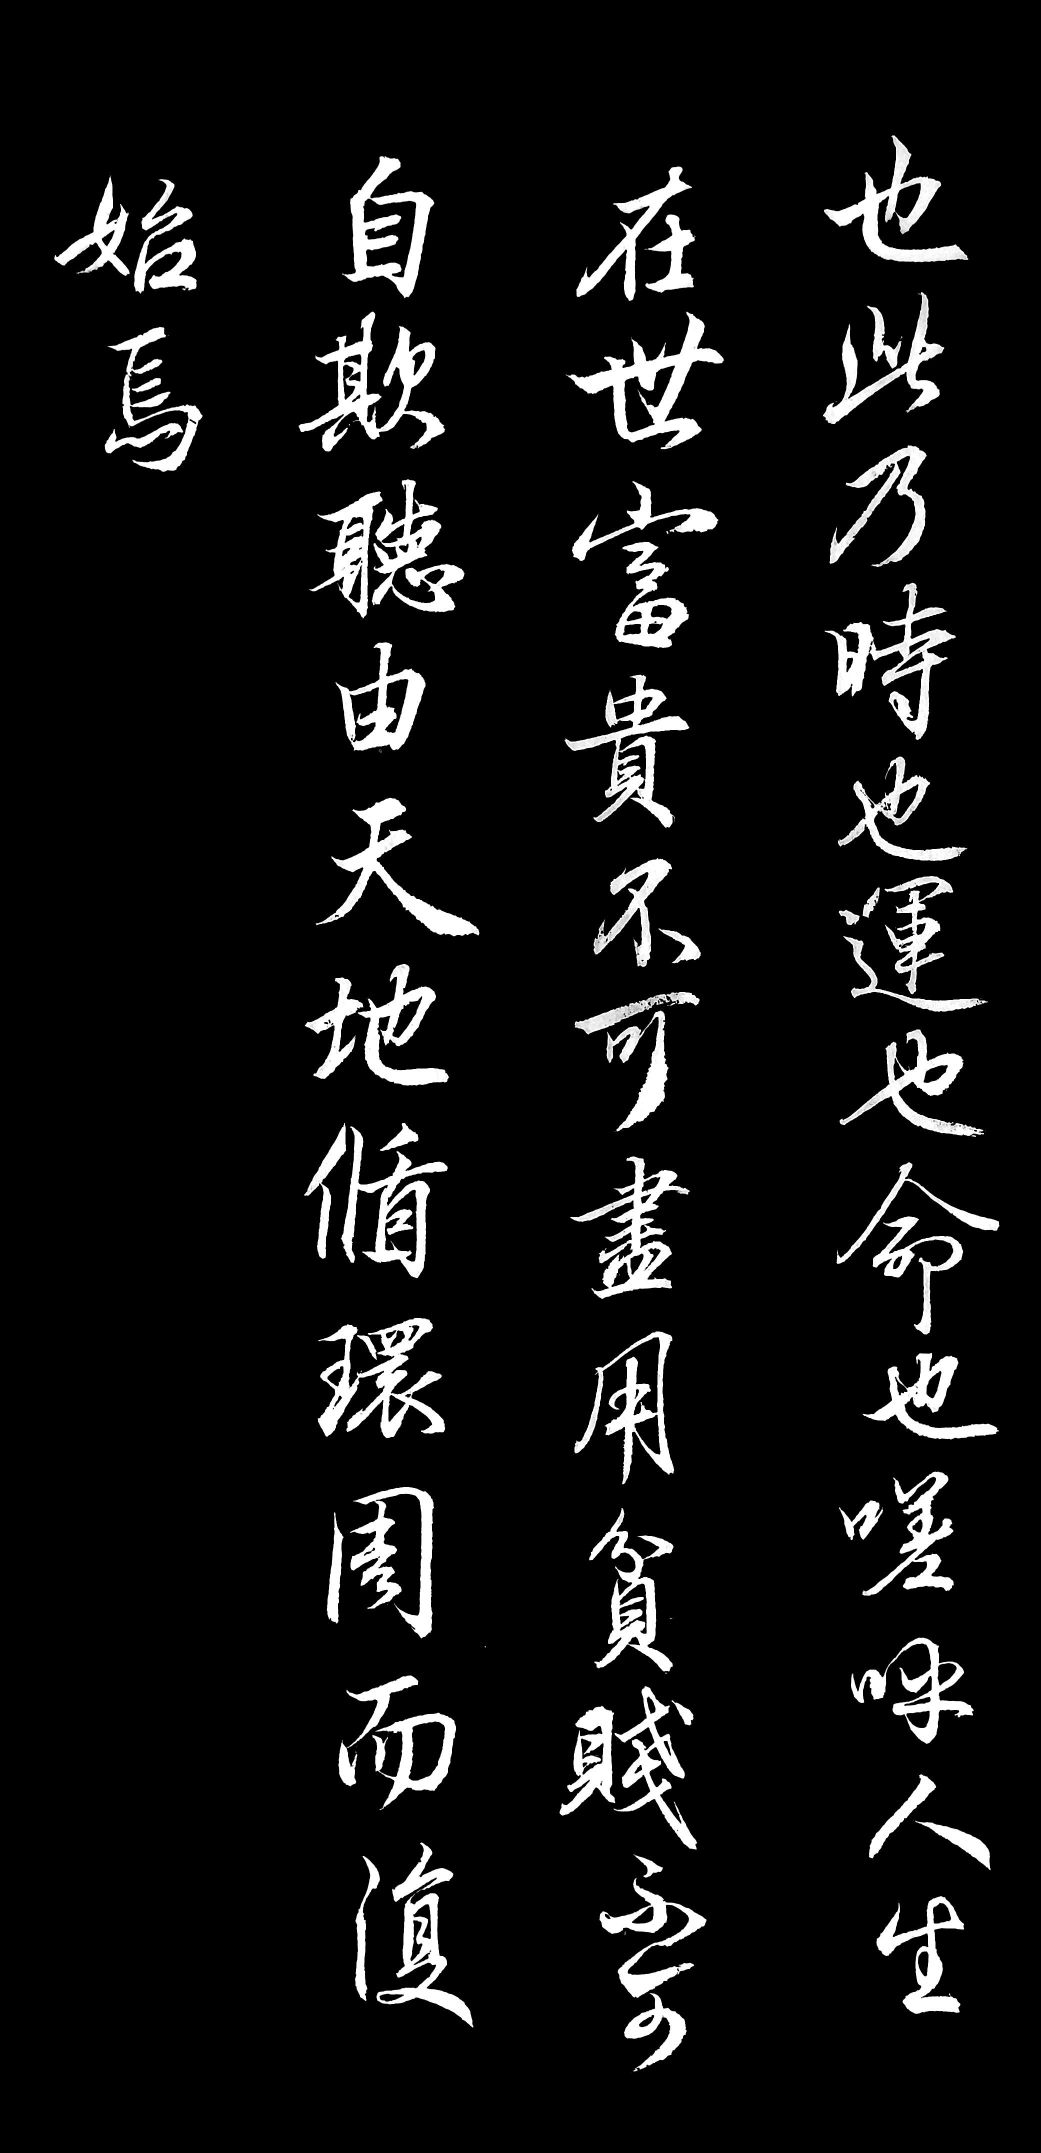 也此乃時也運也命也嗟呼人生
在世富貴不可盡用貧賤不可
自欺聽由天地循環周而復
始焉